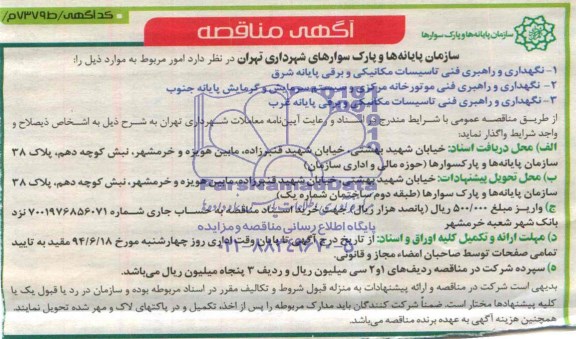 کدآگهی/ط۷۳۷۹م/
آگهی مناقصه
سازمان پایانه‌ها و پارک سوارها
سازمان پایانه‌ها و پارک سوارهای شهرداری تهران در نظر دارد امور مربوط به موارد ذیل را:
۱- نگهداری و راهبری فنی تاسیسات مکانیکی و برقی پایانه شرق
۲- نگهداری و راهبری فنی موتورخانه مرکزی و سرمایش و گرمایش پایانه جنوب
۳- نگهداری و راهبری فنی تاسیسات مکانیکی و برقی پایانه غرب
از طریق مناقصه عمومی با شرایط مندرج در اسناد و رعایت آیین‌نامه معاملات شهرداری تهران به شرح ذیل به اشخاص ذیصلاح و
واجد شرایط واگذار نماید:
الف) محل دریافت اسناد: خیابان شهید بهشتی، خیابان شهید قنبرزاده، مابین هویزه و خرمشهر، نبش کوچه دهم، پلاک ۳۸
سازمان پایانه‌ها و پارکسوارها (حوزه مالی و اداری سازمان)
ب) محل تحویل پیشنهادات: خیابان شهید بهشتی، خیابان شهید قنبرزاده، مابین هویزه و خرمشهر، نبش کوچه دهم، پلاک ۳۸
سازمان پایانه‌ها و پارک سوارها (طبقه دوم ساختمان شماره یک)
ج) واریز مبلغ ۵۰۰/۰۰۰ ریال (پانصد هزار ریال) جهت خرید اسناد مناقصه به حساب جاری شماره ۷۰۰۱۹۷۶۸۵۶۰۷۱ نزد
بانک شهر شعبه خرمشهر
د) مهلت ارائه و تکمیل کلیه اوراق و اسناد: از تاریخ درج آگهی تا پایان وقت اداری روز چهارشنبه مورخ ۹۴/۶/۱۸ مقید به تایید
تمامی صفحات توسط صاحبان امضاء مجاز و قانونی.
ه) سپرده شرکت در مناقصه ردیف‌های ۱و۲ سی میلیون ریال و ردیف ۳ پنجاه میلیون ریال می‌باشد.
بدیهی است شرکت در مناقصه و ارائه پیشنهادات به منزله قبول شروط و تکالیف مقرر در اسناد مربوطه بوده و سازمان در رد یا قبول یک یا
کلیه پیشنهادها مختار است. ضمناً شرکت کنندگان باید مدارک مربوطه را پس از اخذ، تکمیل و در پاکتهای لاک و مهر شده تحویل نمایند.
همچنین هزینه آگهی به عهده برنده مناقصه می‌باشد.
ParsNamadData
پایگاه اطلاع رسانی مناقصه و مزایده